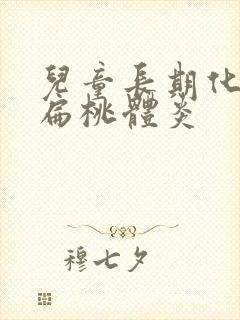 兒童長期化
扁桃體炎
穆七夕